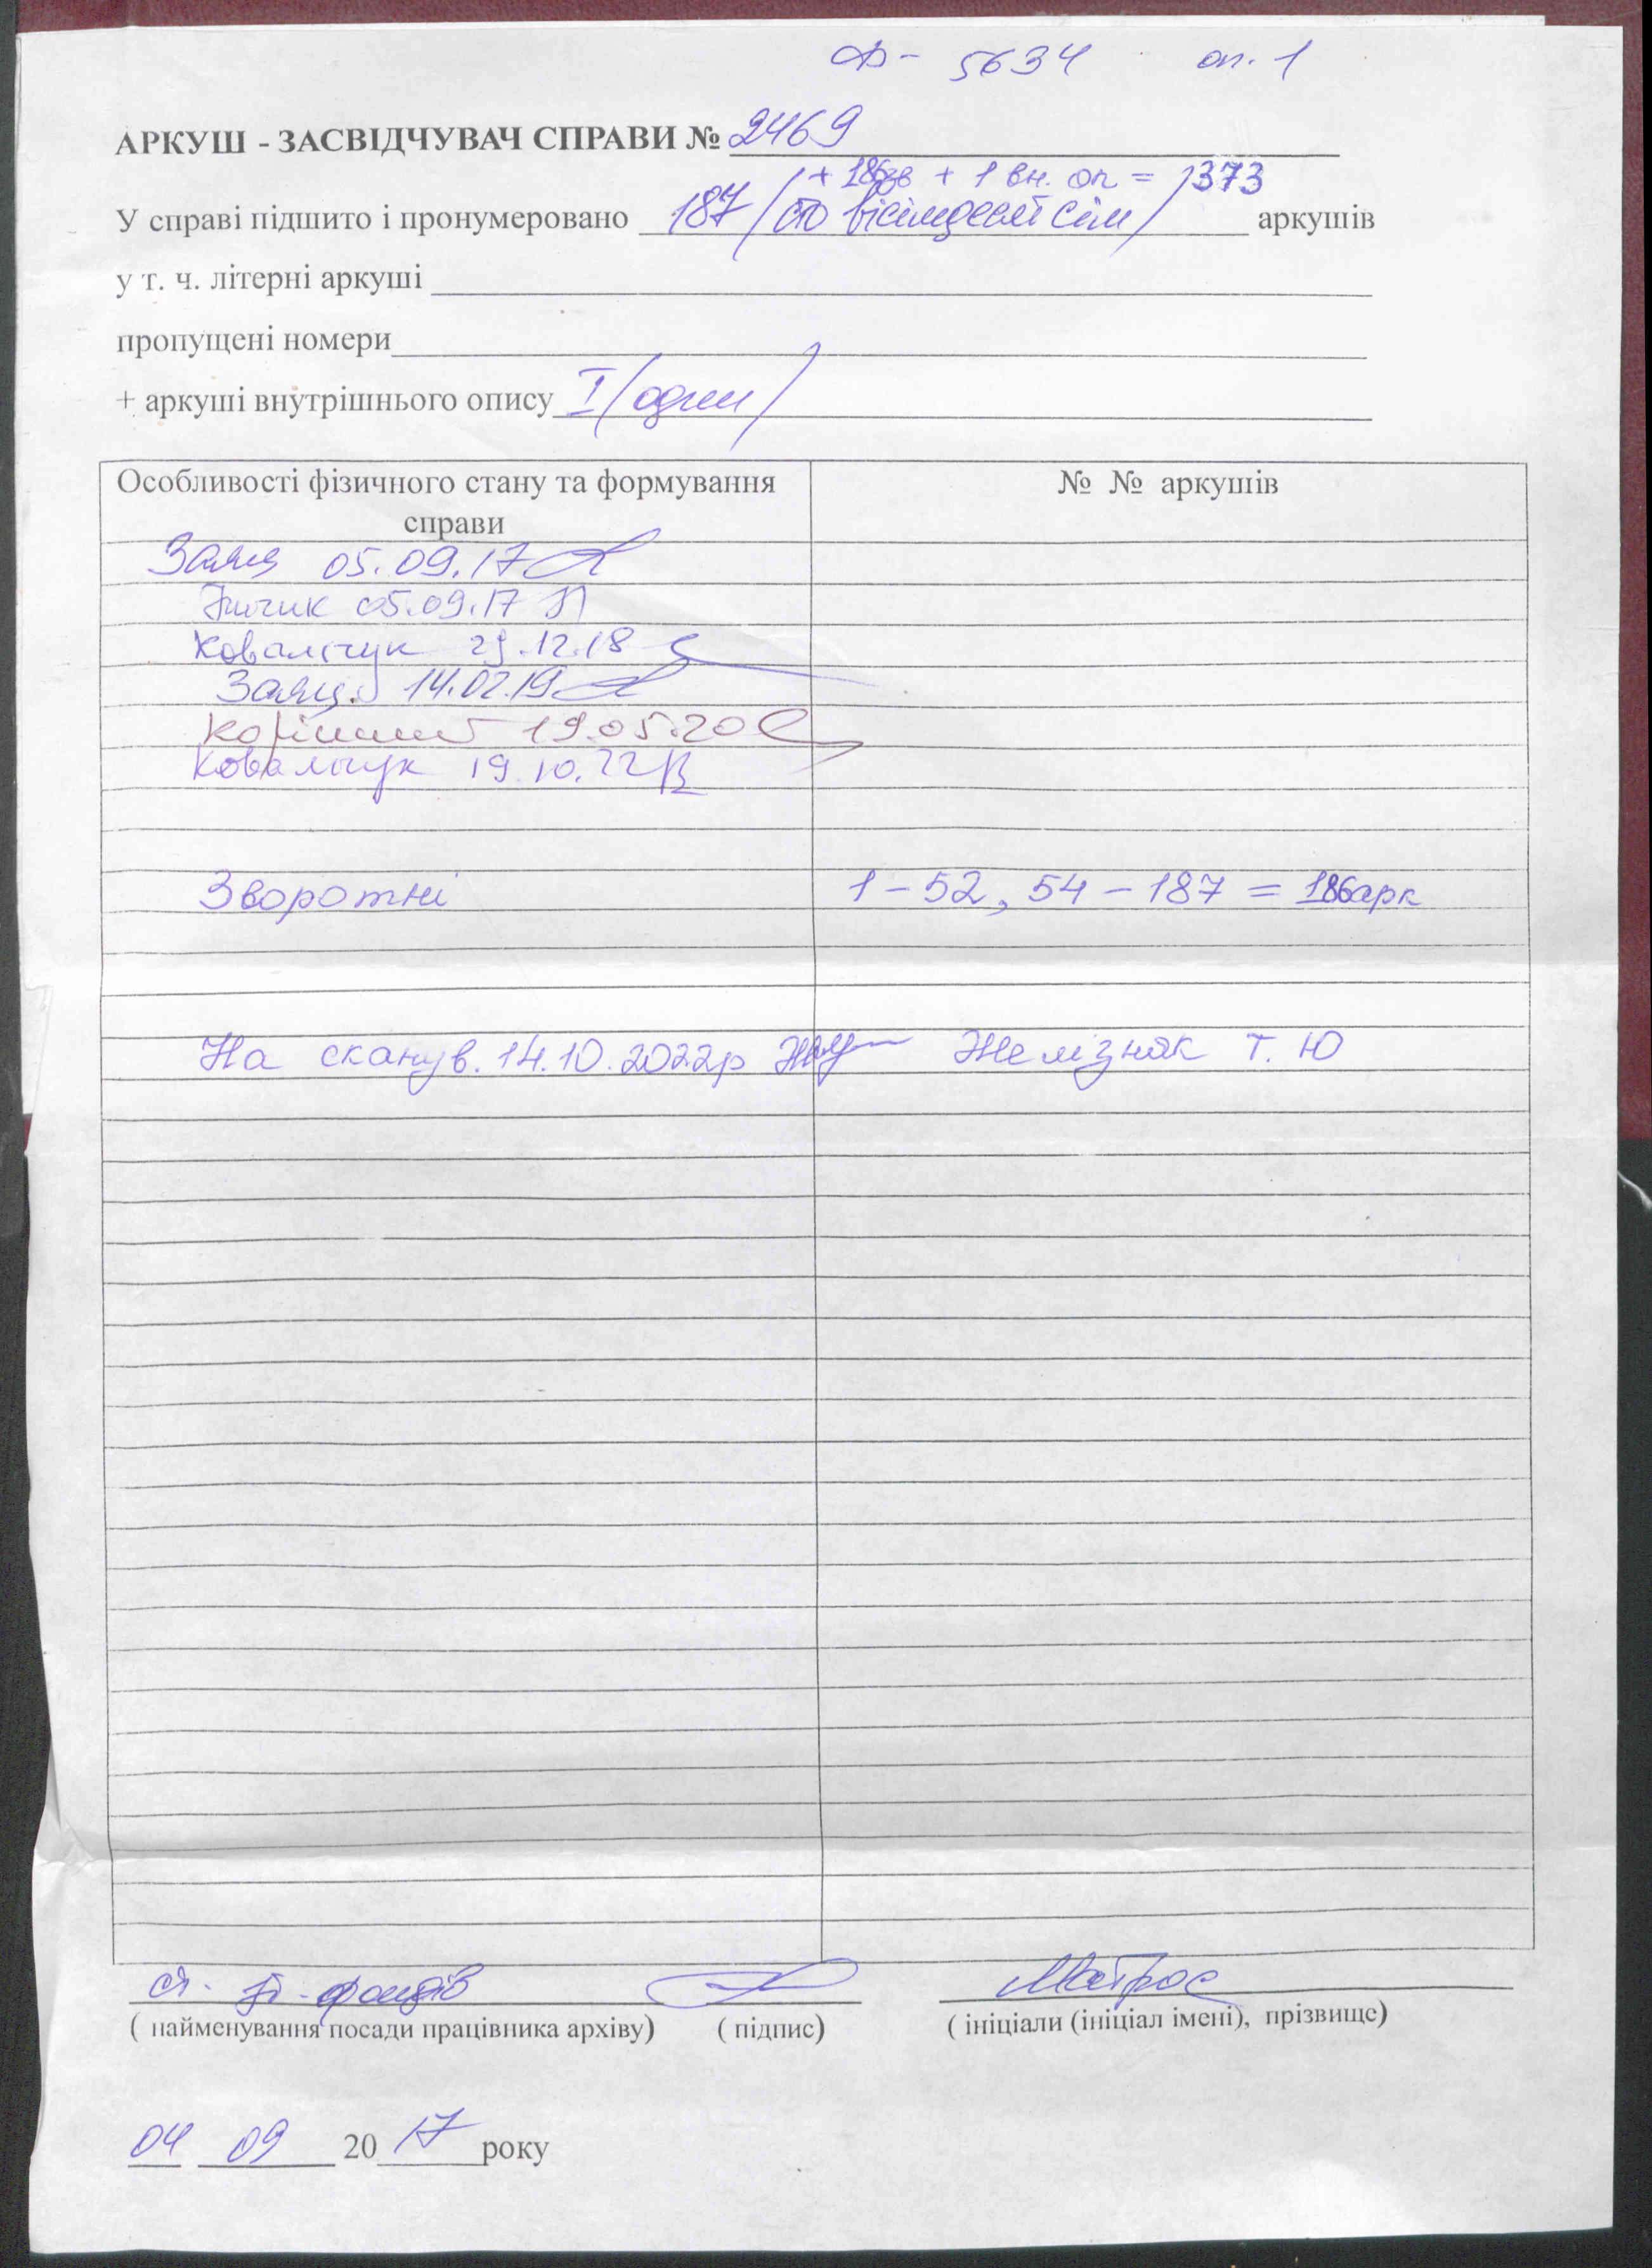 Ф- 5634 оп. 1
АРКУШ - ЗАСВІДЧУВАЧ СПРАВИ № 2469
+ 186зв + 1 вн. оп = 373
У справі підшито і пронумеровано 187 /сто вісімдесят сім/ аркушів
у т. ч. літерні аркуші
пропущені номери
+ аркуші внутрішнього опису I /один/
Особливості фізичного стану та формування
справи
№ № аркушів
Заяц 05.09.17
05.09.17
Ковальчук 29.12.18
Заяц 14.02.19
19.05.20
Ковальчук 19.10.22
Зворотні 1-52, 54-187 = 186арк
На сканув. 14.10.2022р Желізняк Т. Ю
ст. фондів Матрос
( найменування посади працівника архіву) ( підпис) ( ініціали (ініціал імені), прізвище)
04 09 2017 року